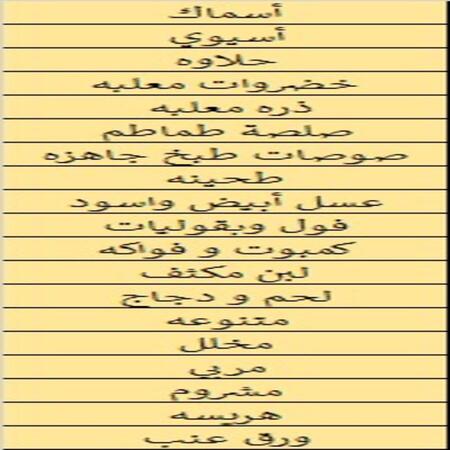 أسماك
أسيوي
حلاوه
خضروات معلبه
ذره معلبه
صلصة طماطم
صوصات طبخ جاهزه
طحينه
عسل أبيض واسود
فول وبقوليات
كمبوت و فواكه
لبن مكثف
لحم و دجاج
متنوعه
مخلل
مربي
مشروم
هريسه
ورق عنب